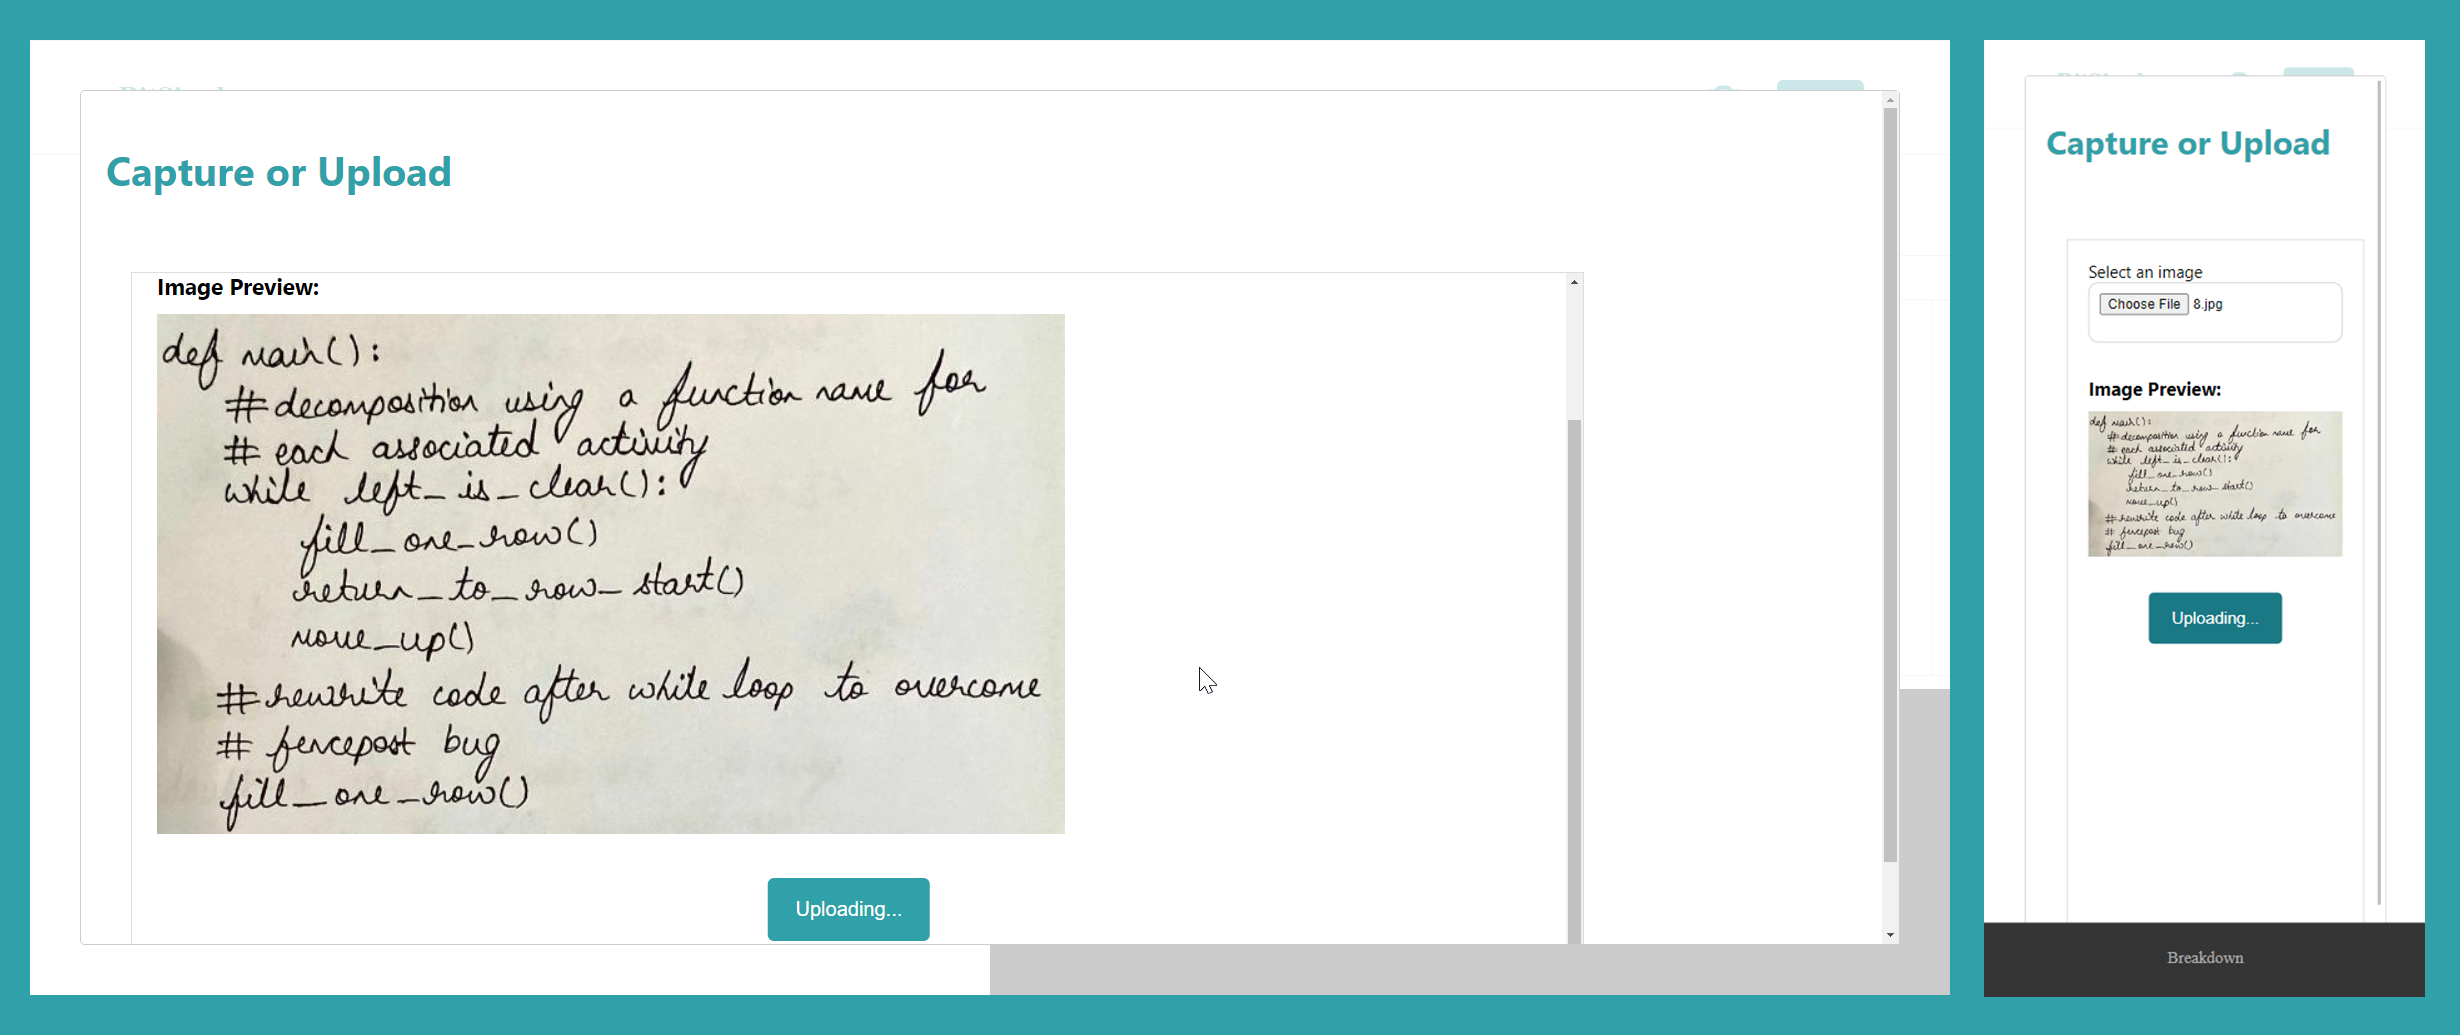 Capture or Upload
Image Preview:
def main():
#decomposition using a function name for
# each associated activity
while left_is_clear():
fill_one_row()
return_to_row_start()
move_up()
#rewrite code after while loop to overcome
# fencepost bug
fill_one_row()
Uploading...
Capture or Upload
Select an image
Choose File 8.jpg
Image Preview:
def main():
#decomposition using a function name for
# each associated activity
while left_is_clear():
fill_one_row()
return_to_row_start()
move_up()
#rewrite code after while loop to overcome
# fencepost bug
fill_one_row()
Uploading...
Breakdown